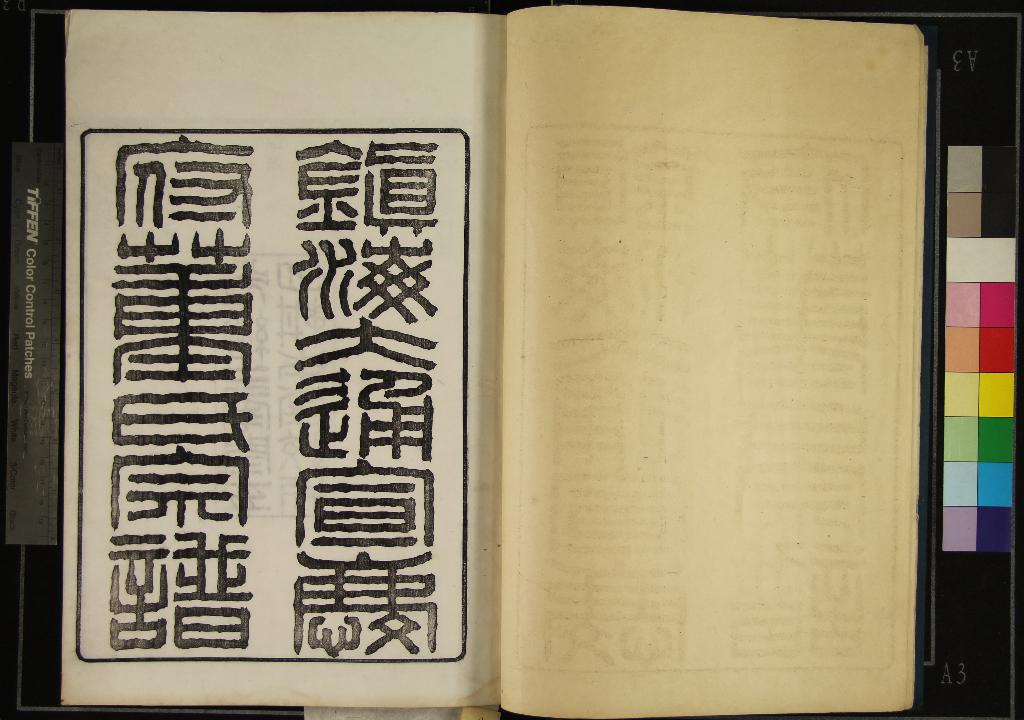 鎮海大通宣慶
府氏宗譜
TIFFEN Color Control Patches
A3
A3